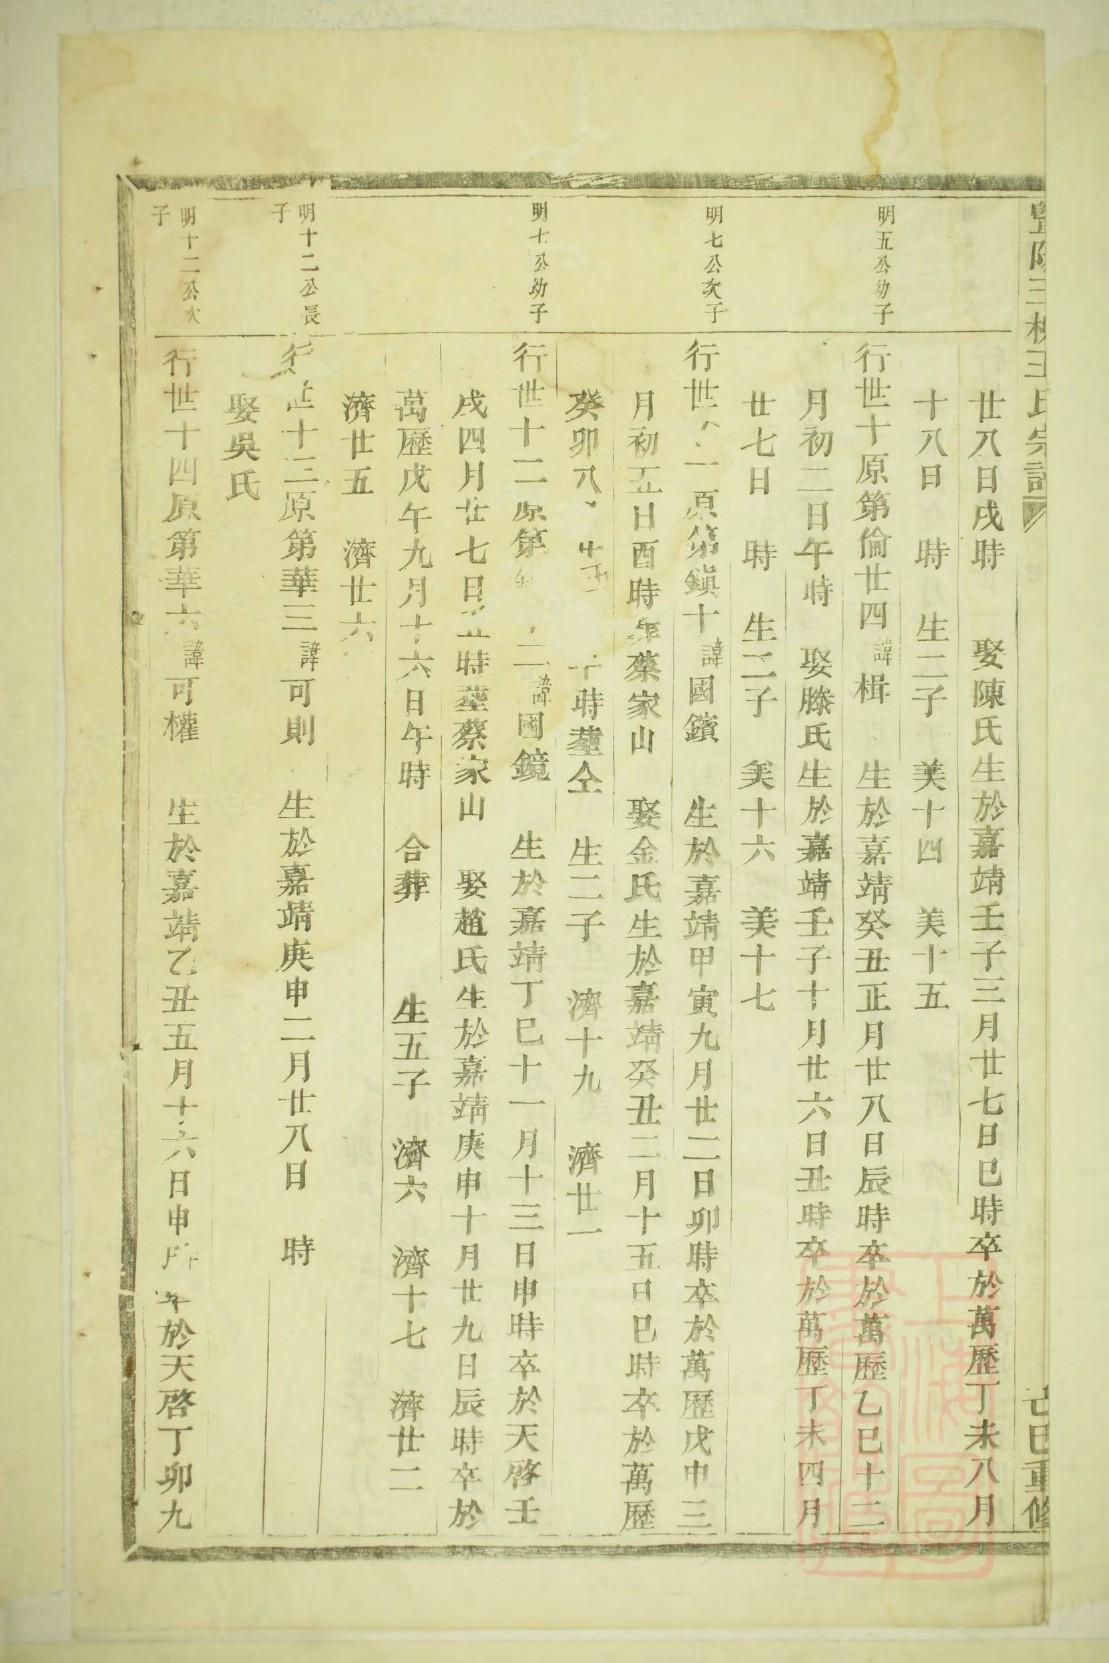 廿八日戌時 娶陳氏生於嘉靖壬子三月廿七日巳時卒於萬歷丁未八月
十八日 時 生二子 美十四 美十五
明五公幼子
行世十原第倫廿四諱楫 生於嘉靖癸丑正月廿八日辰時卒於萬歷乙巳十二
月初二日午時 娶滕氏生於嘉靖壬子十月廿六日丑時卒於萬歷丁未四月
廿七日 時 生二子 美十六 美十七
明七公次子
行世 一原第鎮十諱國鑌 生於嘉靖甲寅九月廿二日卯時卒於萬歷戊申三
月初五日酉時葬蔡家山 娶金氏生於嘉靖癸丑二月十五日巳時卒於萬歷
癸卯 時葬仝 生二子 濟十九 濟廿一
明七公幼子
行世十二原第 二諱國鏡 生於嘉靖丁巳十一月十三日申時卒於天啓壬
戌四月廿七日 時葬蔡家山 娶趙氏生於嘉靖庚申十月廿九日辰時卒於
萬歷戊午九月十六日午時 合葬 生五子 濟六 濟十七 濟廿二
濟廿五 濟廿六
明十二公長子
行世十三原第華三諱可則 生於嘉靖庚申二月廿八日 時
娶吳氏
明十二公次子
行世十四原第華六諱可權 生於嘉靖乙丑五月十六日申時卒於天啓丁卯九